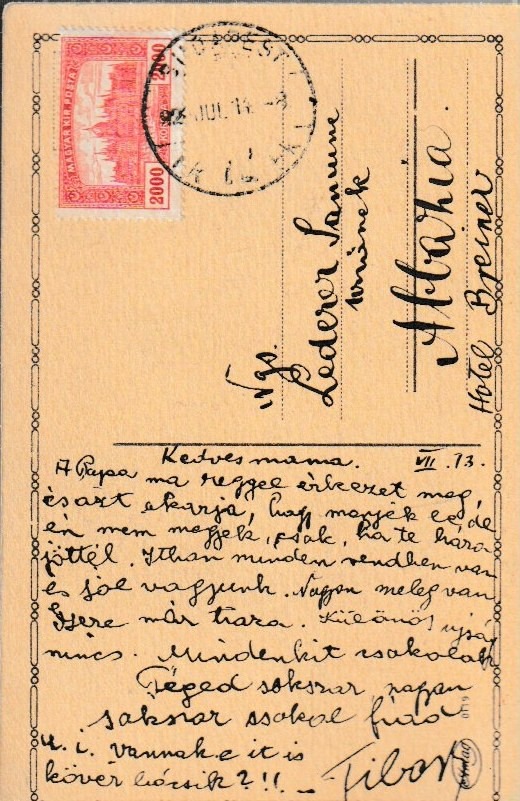 MAGYAR KIR. POSTA
2000 KORONA 2000
BUDAPEST
JUL. 13.
Ngs.
Lederer
urnőnek
Abbázia
Hotel Breiner
Kedves mama. VII. 13.
A Papa ma reggel érkezet meg,
és azt akarja, hogy menjek le, de
én nem megyek, csak, ha te haza
jöttél. Itthan minden rendben van
és jól vagyunk. Nagyon meleg van
Gyere már haza. Külön ujság
nincs. Mindenkit csakolak
Téged sokszor nagyon
sokszor csokol fiad
Tibor
u. i. vannak e it is
kövér bácsik? !!. –